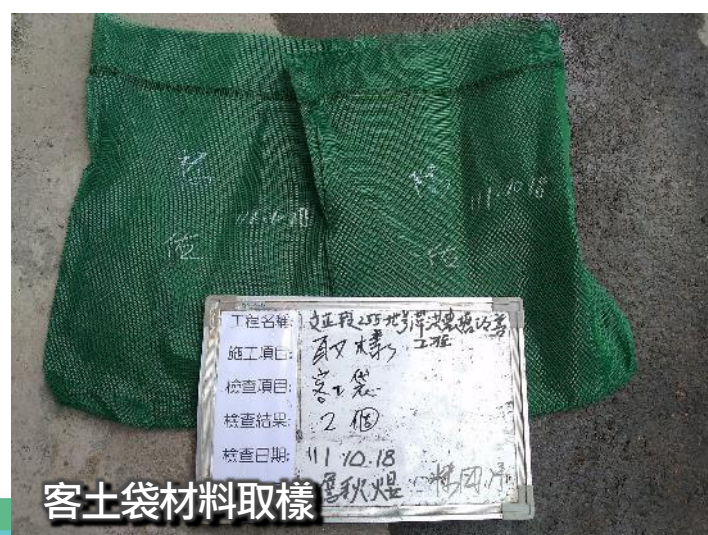 111.10.18
111.10.18
工程名稱: 文正段255地號滯洪農塘改善
工程
施工項目: 取樣
檢查項目: 客土袋
檢查結果: 2個
檢查日期: 111.10.18
客土袋材料取樣